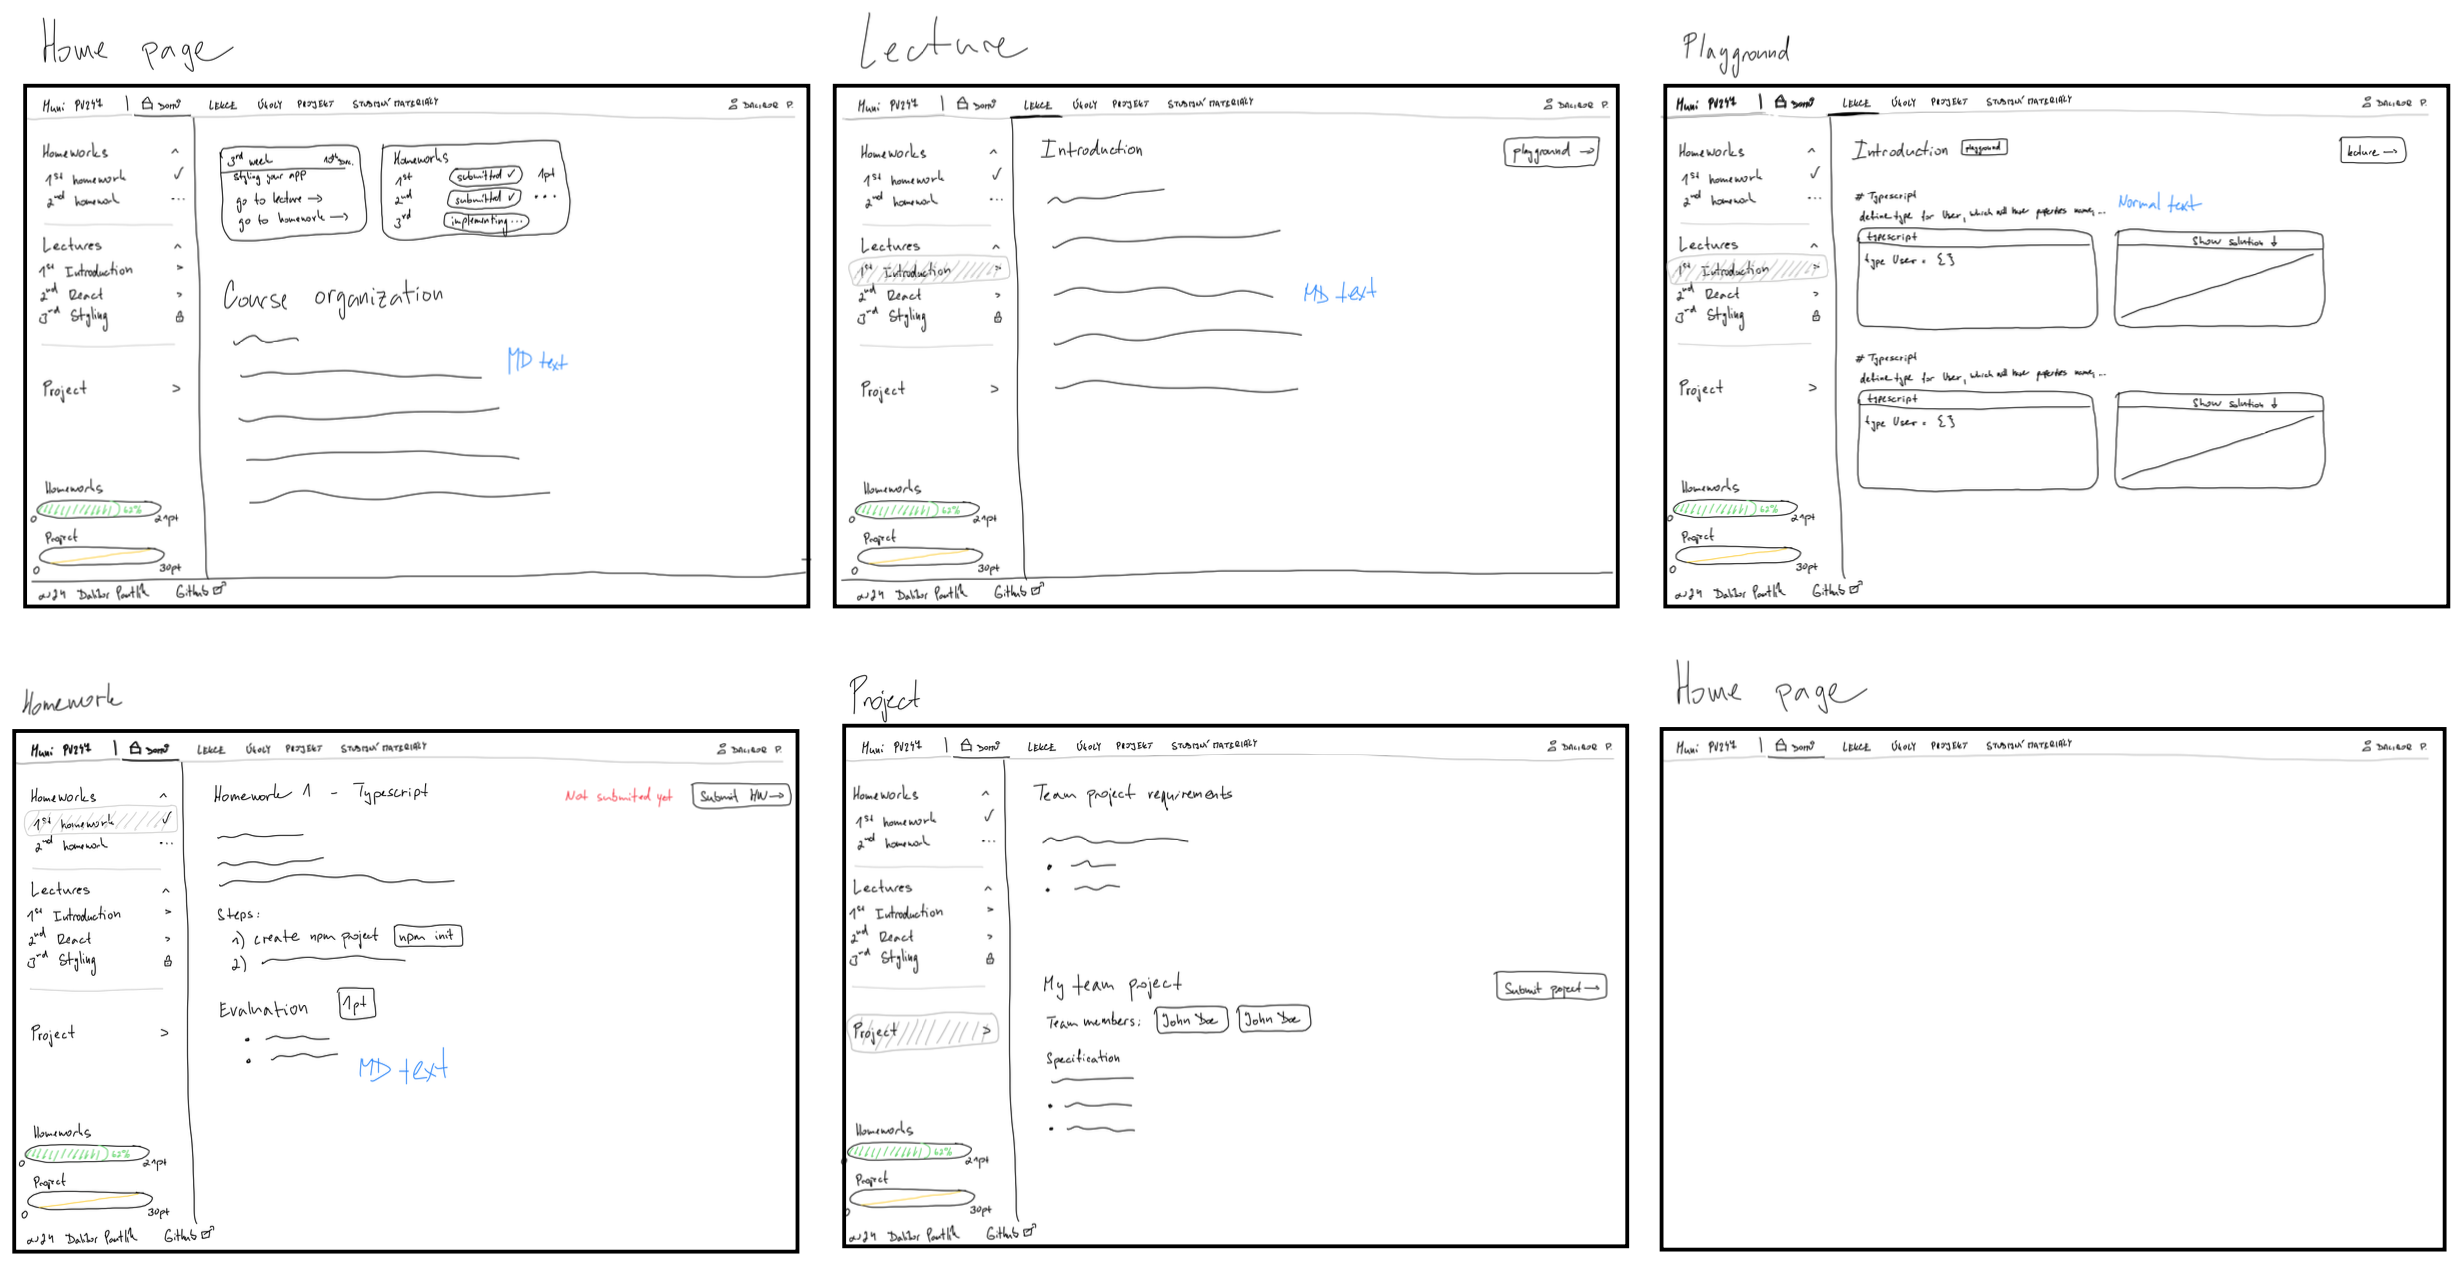 Home page
Muni PV247 | Domů LEKCE ÚKOLY PROJEKT STUDIJNÍ MATERIÁLY DALIBOR P.
Homeworks
1st homework
2nd homework ...
Lectures
1st Introduction >
2nd React >
3rd Styling
Project >
Homeworks
62%
0 21pt
Project
0 30pt
3rd week
Styling your app
go to lecture →
go to homework →
Homeworks
1st submitted ✓ 1pt
2nd submitted ✓ ...
3rd implementing ...
Course organization
MD text
2024 Dalibor Pantlík Github
Lecture
Muni PV247 | Domů LEKCE ÚKOLY PROJEKT STUDIJNÍ MATERIÁLY DALIBOR P.
Homeworks
1st homework ✓
2nd homework ...
Lectures
1st Introduction >
2nd React >
3rd Styling
Project >
Homeworks
62%
0 21pt
Project
0 30pt
Introduction
playground →
MD text
2024 Dalibor Pantlík Github
Playground
Muni PV247 | Domů LEKCE ÚKOLY PROJEKT STUDIJNÍ MATERIÁLY DALIBOR P.
Homeworks
1st homework ✓
2nd homework ...
Lectures
1st Introduction >
2nd React >
3rd Styling
Project >
Homeworks
62%
0 21pt
Project
0 30pt
Introduction playground
lecture →
# Typescript
define type for User, which will have properties name, ...
Normal text
typescript
type User = {}
Show solution ↓
# Typescript
define type for User, which will have properties name, ...
typescript
type User = {}
Show solution ↓
2024 Dalibor Pantlík Github
Homework
Muni PV247 | Domů LEKCE ÚKOLY PROJEKT STUDIJNÍ MATERIÁLY DALIBOR P.
Homeworks
1st homework ✓
2nd homework ...
Lectures
1st Introduction >
2nd React >
3rd Styling
Project >
Homeworks
62%
0 21pt
Project
0 30pt
Homework 1 - Typescript
Not submited yet
Submit HW →
Steps:
1) create npm project npm init
2)
Evaluation 1pt
MD text
2024 Dalibor Pantlík Github
Project
Muni PV247 | Domů LEKCE ÚKOLY PROJEKT STUDIJNÍ MATERIÁLY DALIBOR P.
Homeworks
1st homework ✓
2nd homework ...
Lectures
1st Introduction >
2nd React >
3rd Styling
Project >
Homeworks
62%
0 21pt
Project
0 30pt
Team project requirements
My team project
Submit project →
Team members: John Doe John Doe
Specification
2024 Dalibor Pantlík Github
Home page
Muni PV247 | Domů LEKCE ÚKOLY PROJEKT STUDIJNÍ MATERIÁLY DALIBOR P.